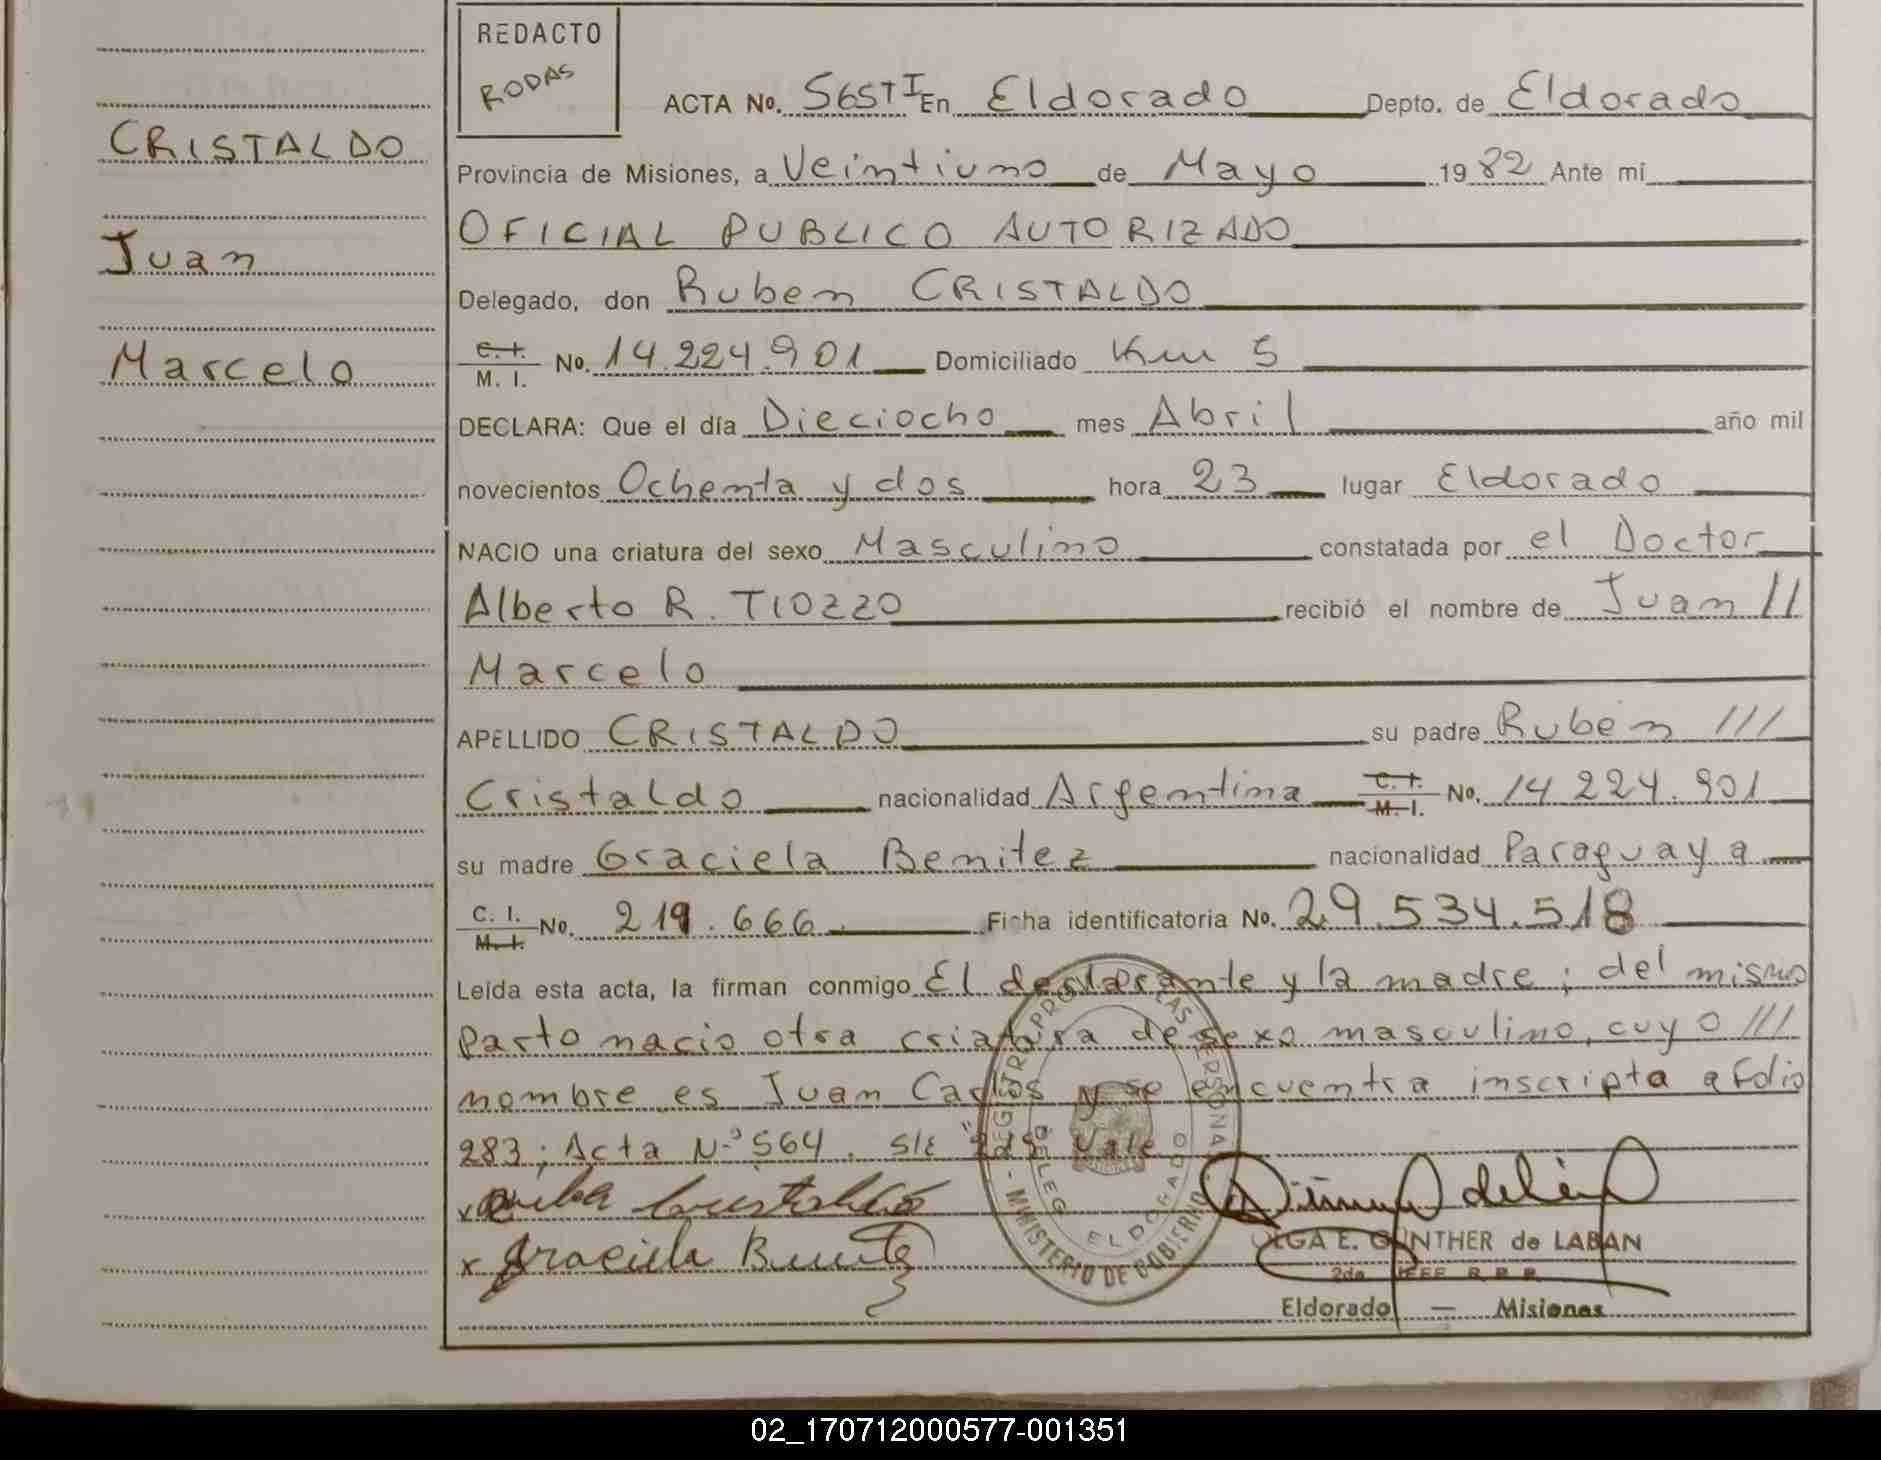 REDACTO
RODAS
ACTA No. 565 T I En Eldorado Depto. de Eldorado
CRISTALDO
Provincia de Misiones, a Veintiuno de Mayo 1982 Ante mí
OFICIAL PUBLICO AUTORIZADO
Juan
Delegado, don Ruben CRISTALDO
C. I. M. I. No. 14.224.901 Domiciliado Km 5
Marcelo
DECLARA: Que el día Dieciocho mes Abril año mil
novecientos Ochenta y dos hora 23 lugar Eldorado
NACIO una criatura del sexo Masculino constatada por el Doctor
Alberto R. TIOZZO recibió el nombre de Juan //
Marcelo
APELLIDO CRISTALDO su padre Ruben ///
Cristaldo nacionalidad Argentina C. I. M. I. No. 14.224.901
su madre Graciela Benitez nacionalidad Paraguaya
C. I. M. I. No. 219.666. Ficha identificatoria No. 29.534.518
Leída esta acta, la firman conmigo El declarante y la madre; del mismo
parto nacio otra criatura de sexo masculino, cuyo ///
nombre es Juan Carlos y se encuentra inscripta a Folio
283; Acta Nº 564. S/E Vale
Graciela Benitez
REGISTRO PROV. LAS PERSONAS
DELEG. ELDORADO
MINISTERIO DE GOBIERNO
OLGA E. GUNTHER de LABAN
2da JEFE R. P. P.
Eldorado — Misiones
02_170712000577-001351